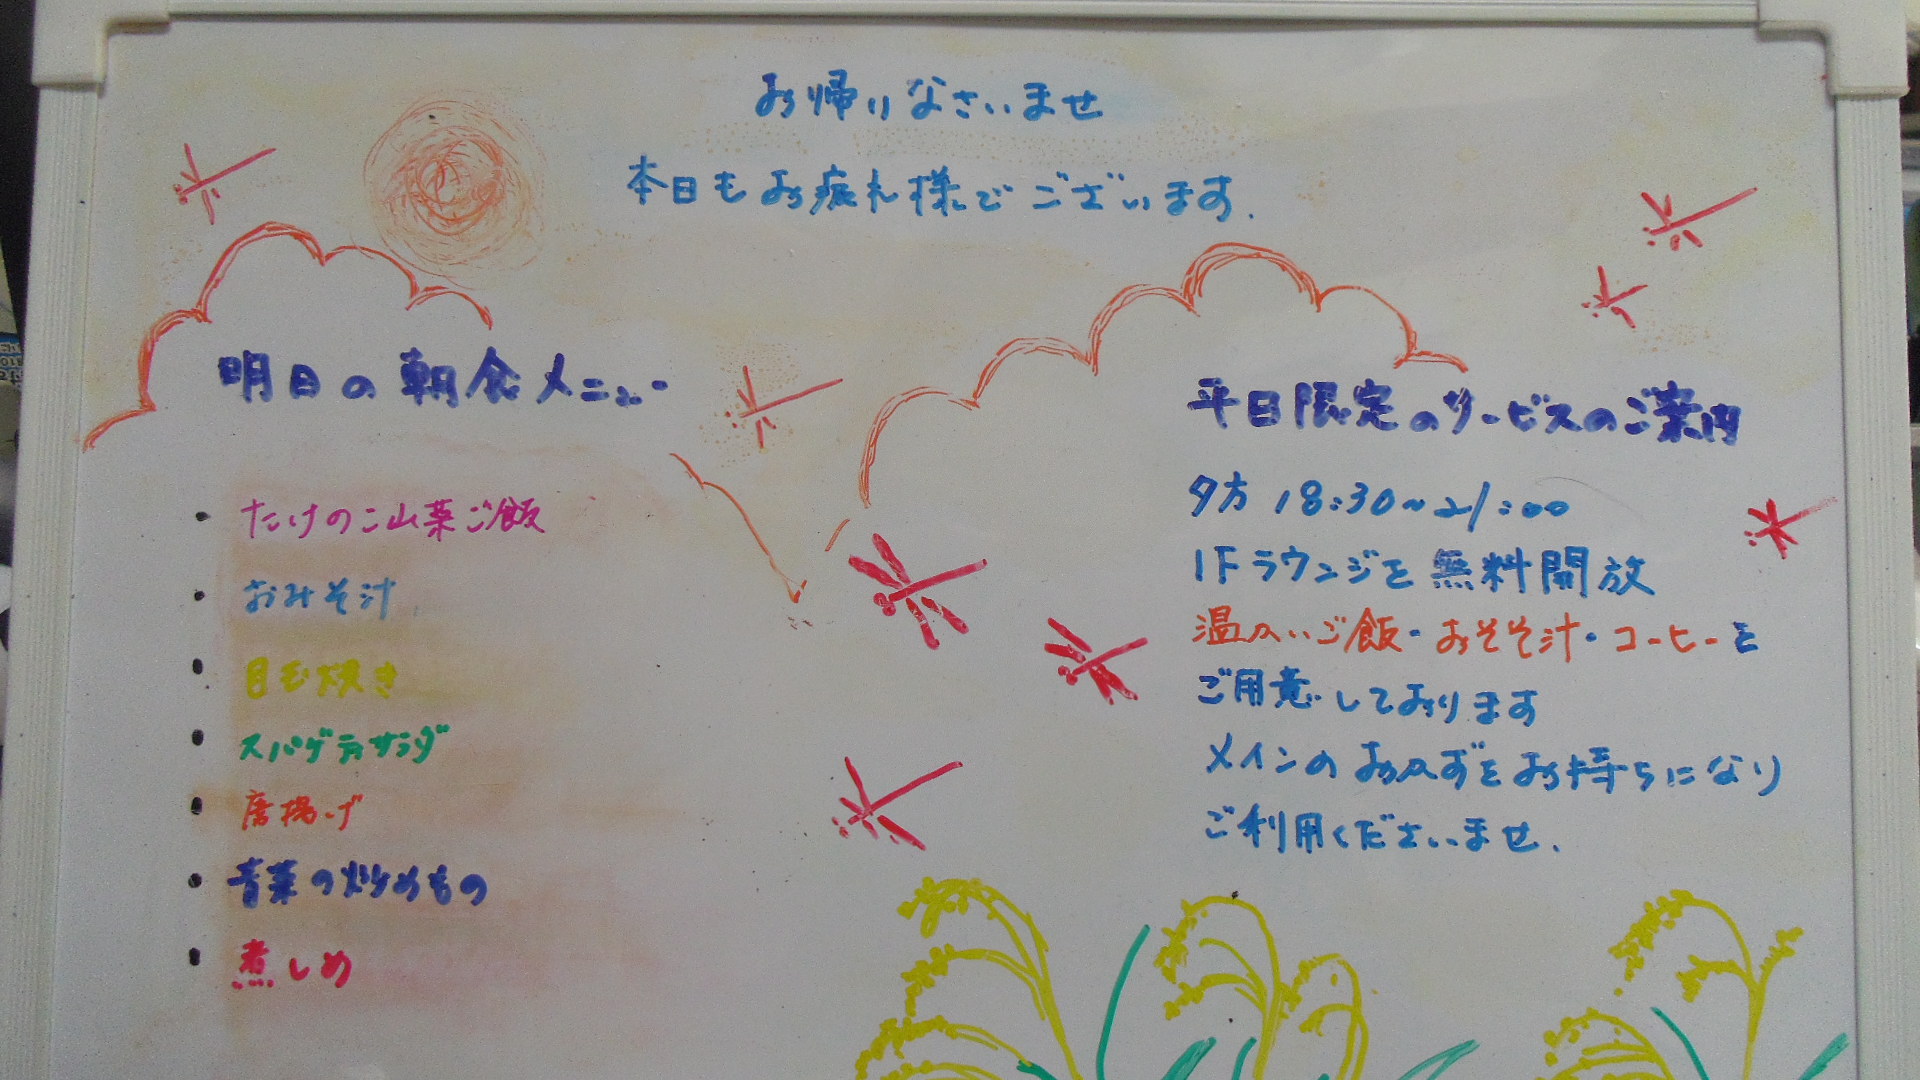 お帰りなさいませ
本日もお疲れ様でございます.
明日の朝食メニュー
・たけのこ山菜ご飯
・おみそ汁
・目玉焼き
・スパゲティサラダ
・唐揚げ
・青菜の炒めもの
・煮しめ
平日限定のサービスのご案内
夕方 18:30~21:00
1Fラウンジを無料開放
温かいご飯・おそそ汁・コーヒーを
ご用意しております
メインのおかずをお持ちになり
ご利用くださいませ.